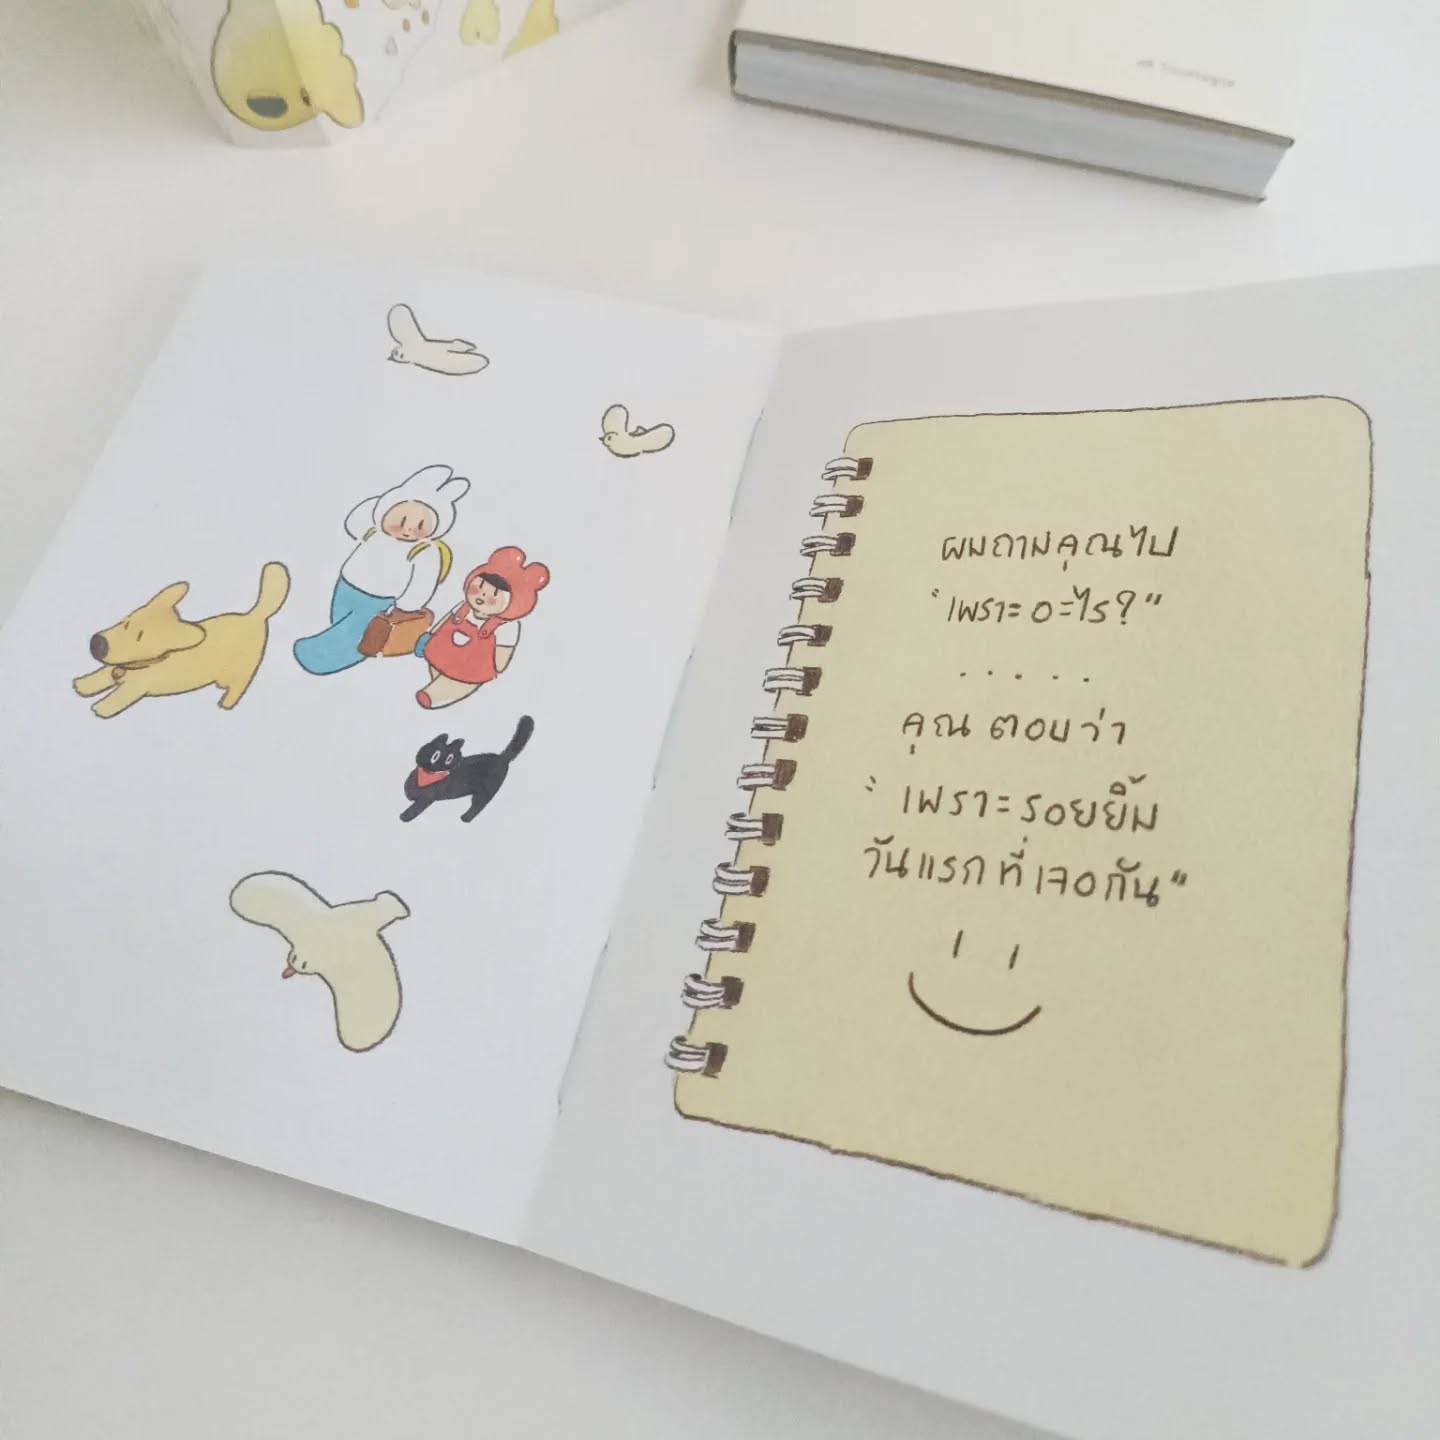 ผมถามคุณไป
"เพราะอะไร?"
.....
คุณ ตอบว่า
"เพราะรอยยิ้ม
วันแรกที่เจอกัน"